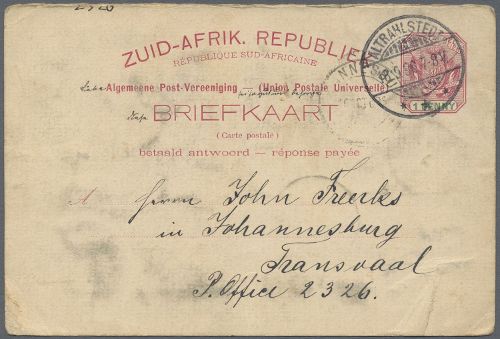 ZUID-AFRIK. REPUBLIEK
RÉPUBLIQUE SUD-AFRICAINE
Algemeene Post-Vereeniging (Union Postale Universelle)
BRIEFKAART
(Carte postale)
betaald antwoord — réponse payée
ALTRAHLSTEDT
1 PENNY
A Herrn John Freerks
in Johannesburg
Transvaal
P. Office 2326.